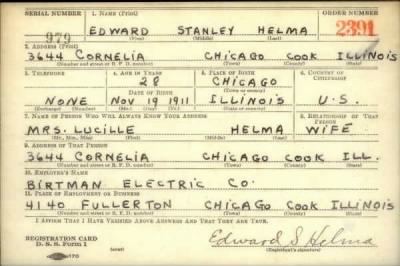 SERIAL NUMBER 1. NAME (Print) ORDER NUMBER
979 EDWARD STANLEY HELMA 2391
(First) (Middle) (Last)
2. ADDRESS (Print)
3644 CORNELIA CHICAGO COOK ILLINOIS
(Number and street or R. F. D. number) (Town) (County) (State)
3. TELEPHONE 4. AGE IN YEARS 5. PLACE OF BIRTH 6. COUNTRY OF CITIZENSHIP
28 CHICAGO
DATE OF BIRTH (Town or county)
NONE NOV 19 1911 ILLINOIS U.S.
(Exchange) (Number) (Mo.) (Day) (Yr.) (State or country)
7. NAME OF PERSON WHO WILL ALWAYS KNOW YOUR ADDRESS 8. RELATIONSHIP OF THAT PERSON
MRS. LUCILLE HELMA WIFE
(Mr., Mrs., Miss) (First) (Middle) (Last)
9. ADDRESS OF THAT PERSON
3644 CORNELIA CHICAGO COOK ILL.
(Number and street or R. F. D. number) (Town) (County) (State)
10. EMPLOYER'S NAME
BIRTMAN ELECTRIC CO.
11. PLACE OF EMPLOYMENT OR BUSINESS
4140 FULLERTON CHICAGO COOK ILLINOIS
(Number and street or R. F. D. number) (Town) (County) (State)
I AFFIRM THAT I HAVE VERIFIED ABOVE ANSWERS AND THAT THEY ARE TRUE.
REGISTRATION CARD
D. S. S. Form 1 (over) Edward S Helma
(Registrant's signature)